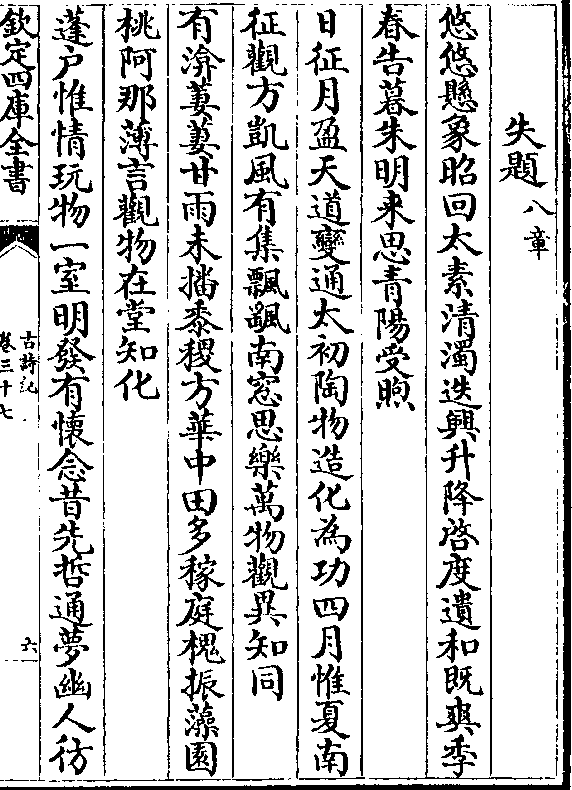 失題八章
悠悠懸象昭回太素清濁迭興升降啓度遺和既爽季
春告暮朱明來思青陽受煦
日征月盈天道變通太初陶物造化為功四月惟夏南
征觀方凱風有集飄颻南窓思樂萬物觀異知同
有渰萋萋甘雨未播黍稷方華中田多稼庭槐振藻園
桃阿那薄言觀物在堂知化
蓬户惟情玩物一室明發有懷念昔先哲通夢幽人彷
欽定四庫全書
古詩紀
卷三十七
六